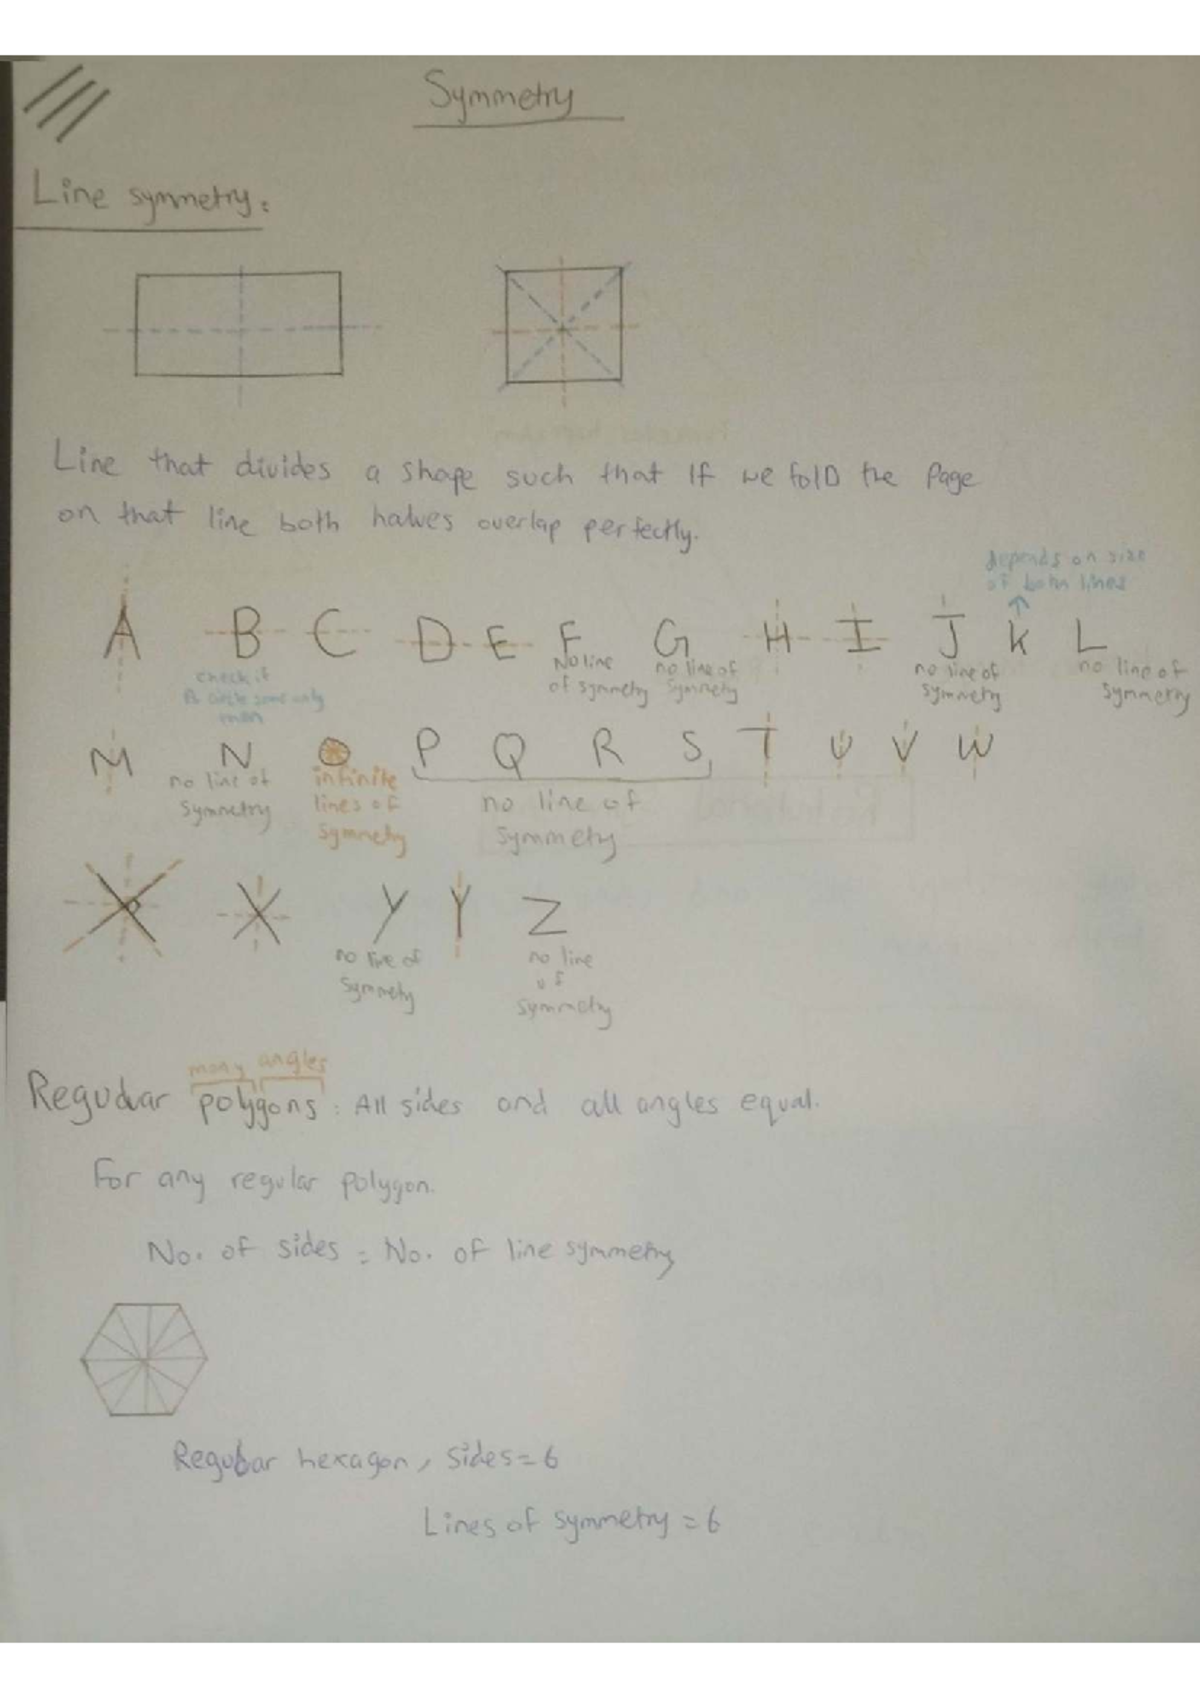 Symmetry
Line symmetry:
Line that divides a shape such that if we fold the Page
on that line both halves overlap perfectly.
depends on size
of both lines
A B C D E F G H I J K L
check if
No line
of symmetry
no line of
symmetry
no line of
symmetry
no line of
symmetry
M N O P Q R S T U V W
no line of
symmetry
infinite
lines of
symmetry
no line of
symmetry
X X Y Y Z
no line of
symmetry
no line
of
symmetry
many angles
Regular polygons: All sides and all angles equal.
For any regular polygon.
No. of sides = No. of line symmetry
Regular hexagon, sides = 6
Lines of symmetry = 6